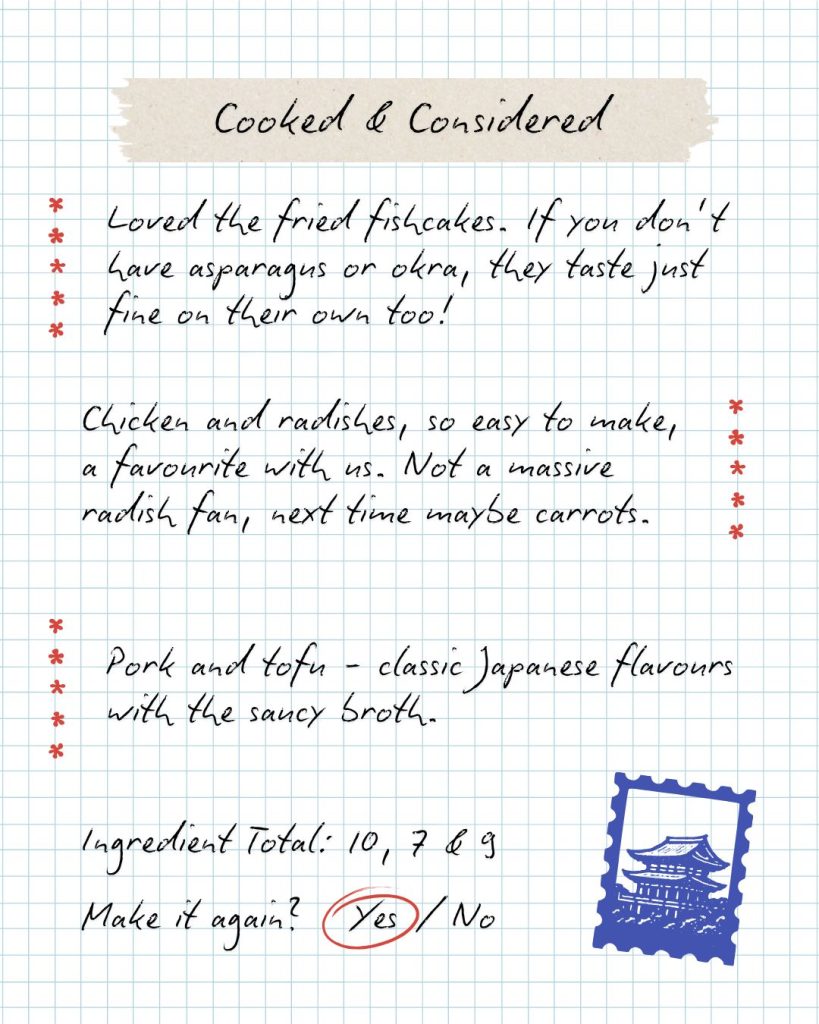 Cooked & Considered
Loved the fried fishcakes. If you don't
have asparagus or okra, they taste just
fine on their own too!
Chicken and radishes, so easy to make,
a favourite with us. Not a massive
radish fan, next time maybe carrots.
Pork and tofu - classic Japanese flavours
with the saucy broth.
Ingredient Total: 10, 7 & 9
Make it again? Yes / No